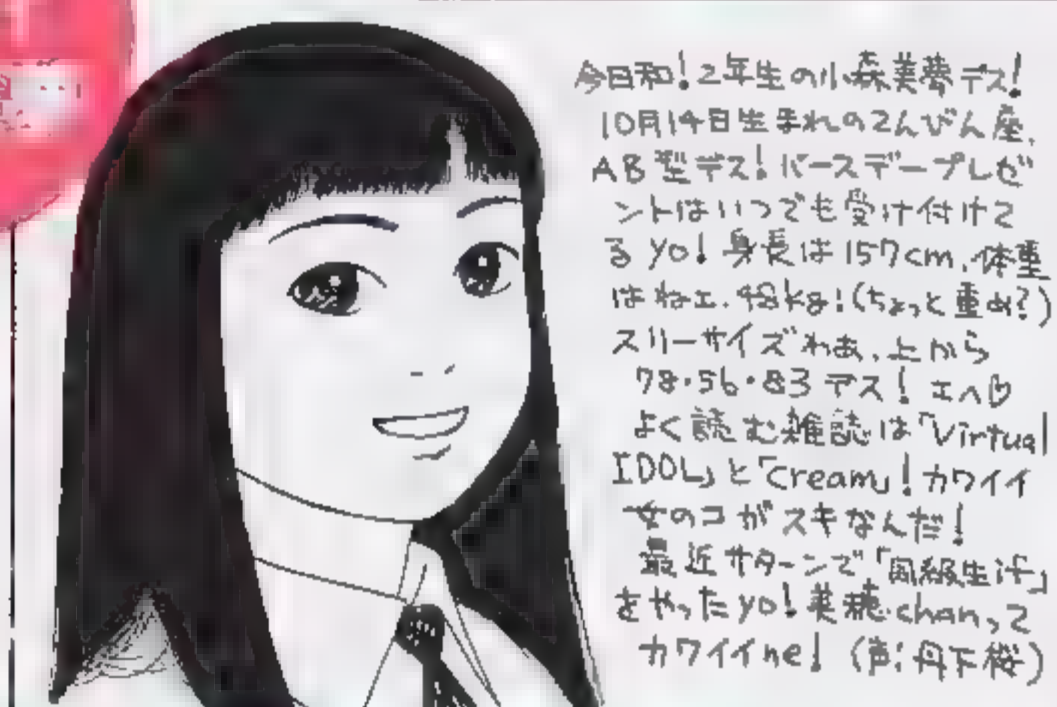 今日和!2年生の小森美夢デス!
10月14日生まれのてんびん座、
AB型デス!バースデープレゼ
ントはいつでも受け付けて
るyo!身長は157cm、体重
はねェ、48kg!(ちょっと重め?)
スリーサイズわぁ、上から
78・56・83デス!エヘ♡
よく読む雑誌は「Virtual
IDOL」と「Cream」!カワイイ
女のコがスキなんだ!
最近サターンで「同級生if」
をやったyo!美穂chanって
カワイイne!(声:丹下桜)